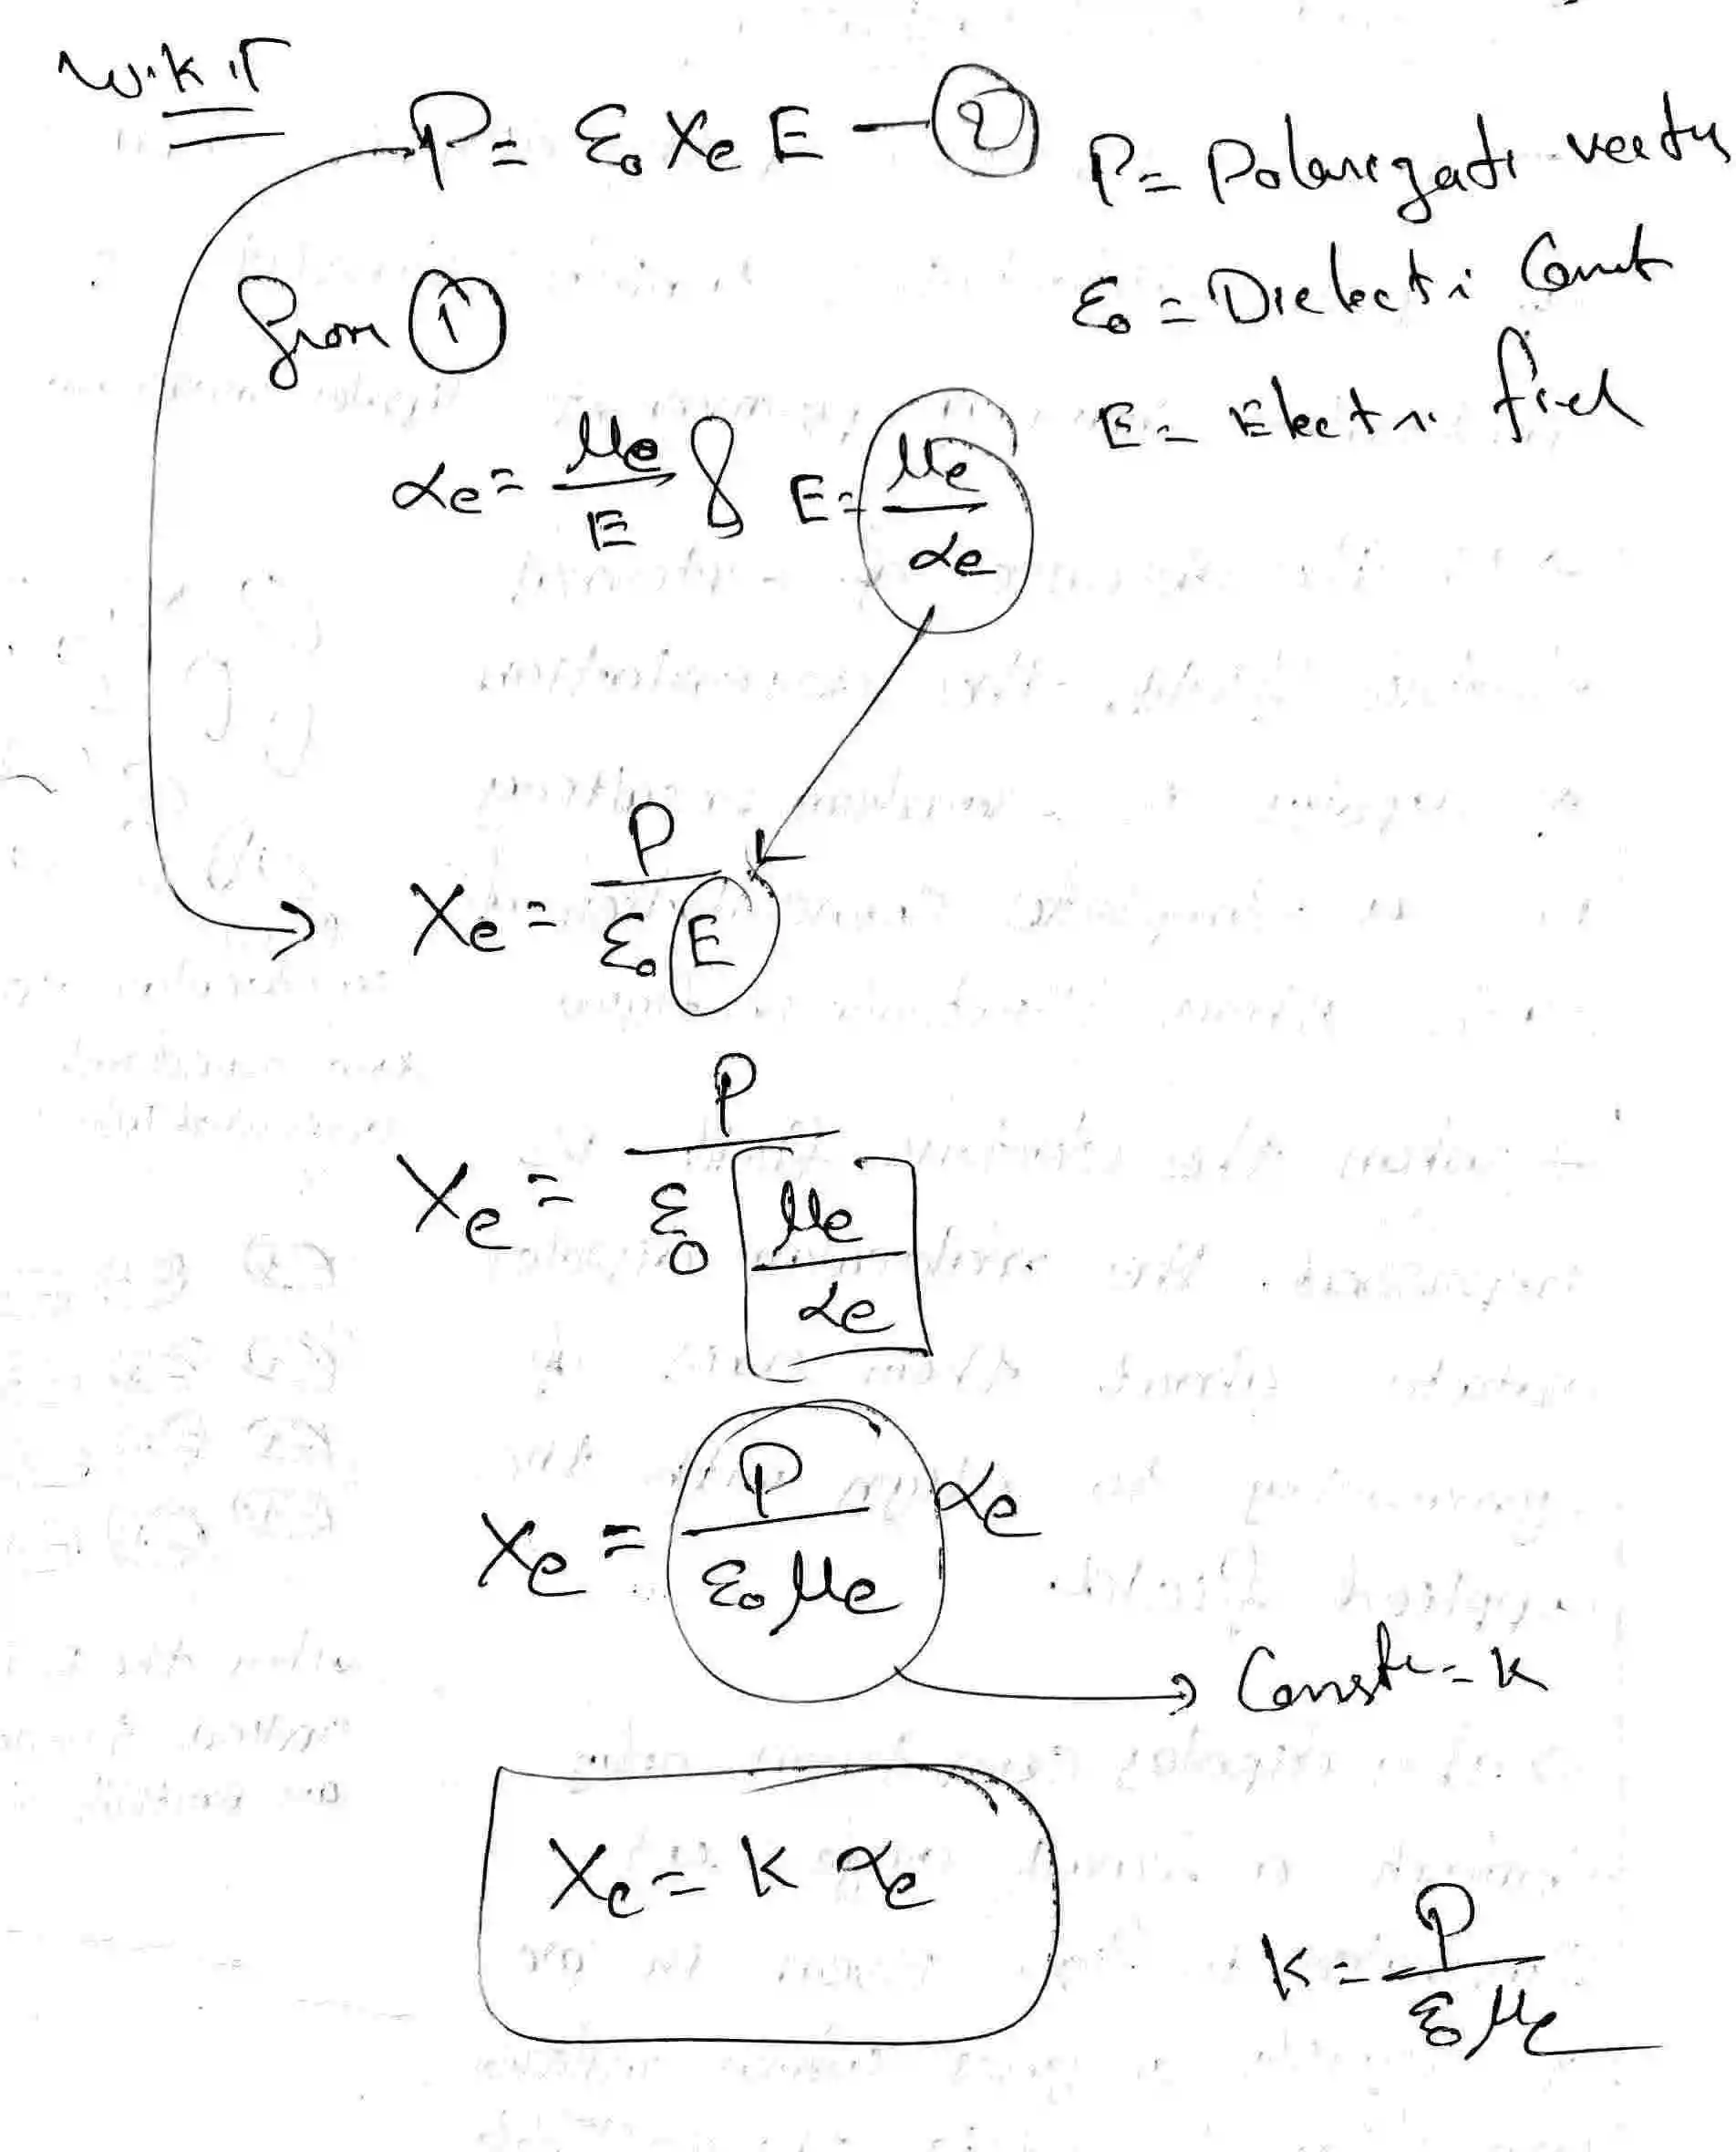 W.K.T
P = ε₀ χe E — ②
P = Polarizati vector
ε₀ = Dielectri Const
E = Electri field
from ①
αe = μe / E
E = μe / αe
χe = P / ε₀ E
χe = P / ε₀ [μe / αe]
χe = P / ε₀ μe αe
→ Const = K
χe = K αe
K = P / ε₀ μe